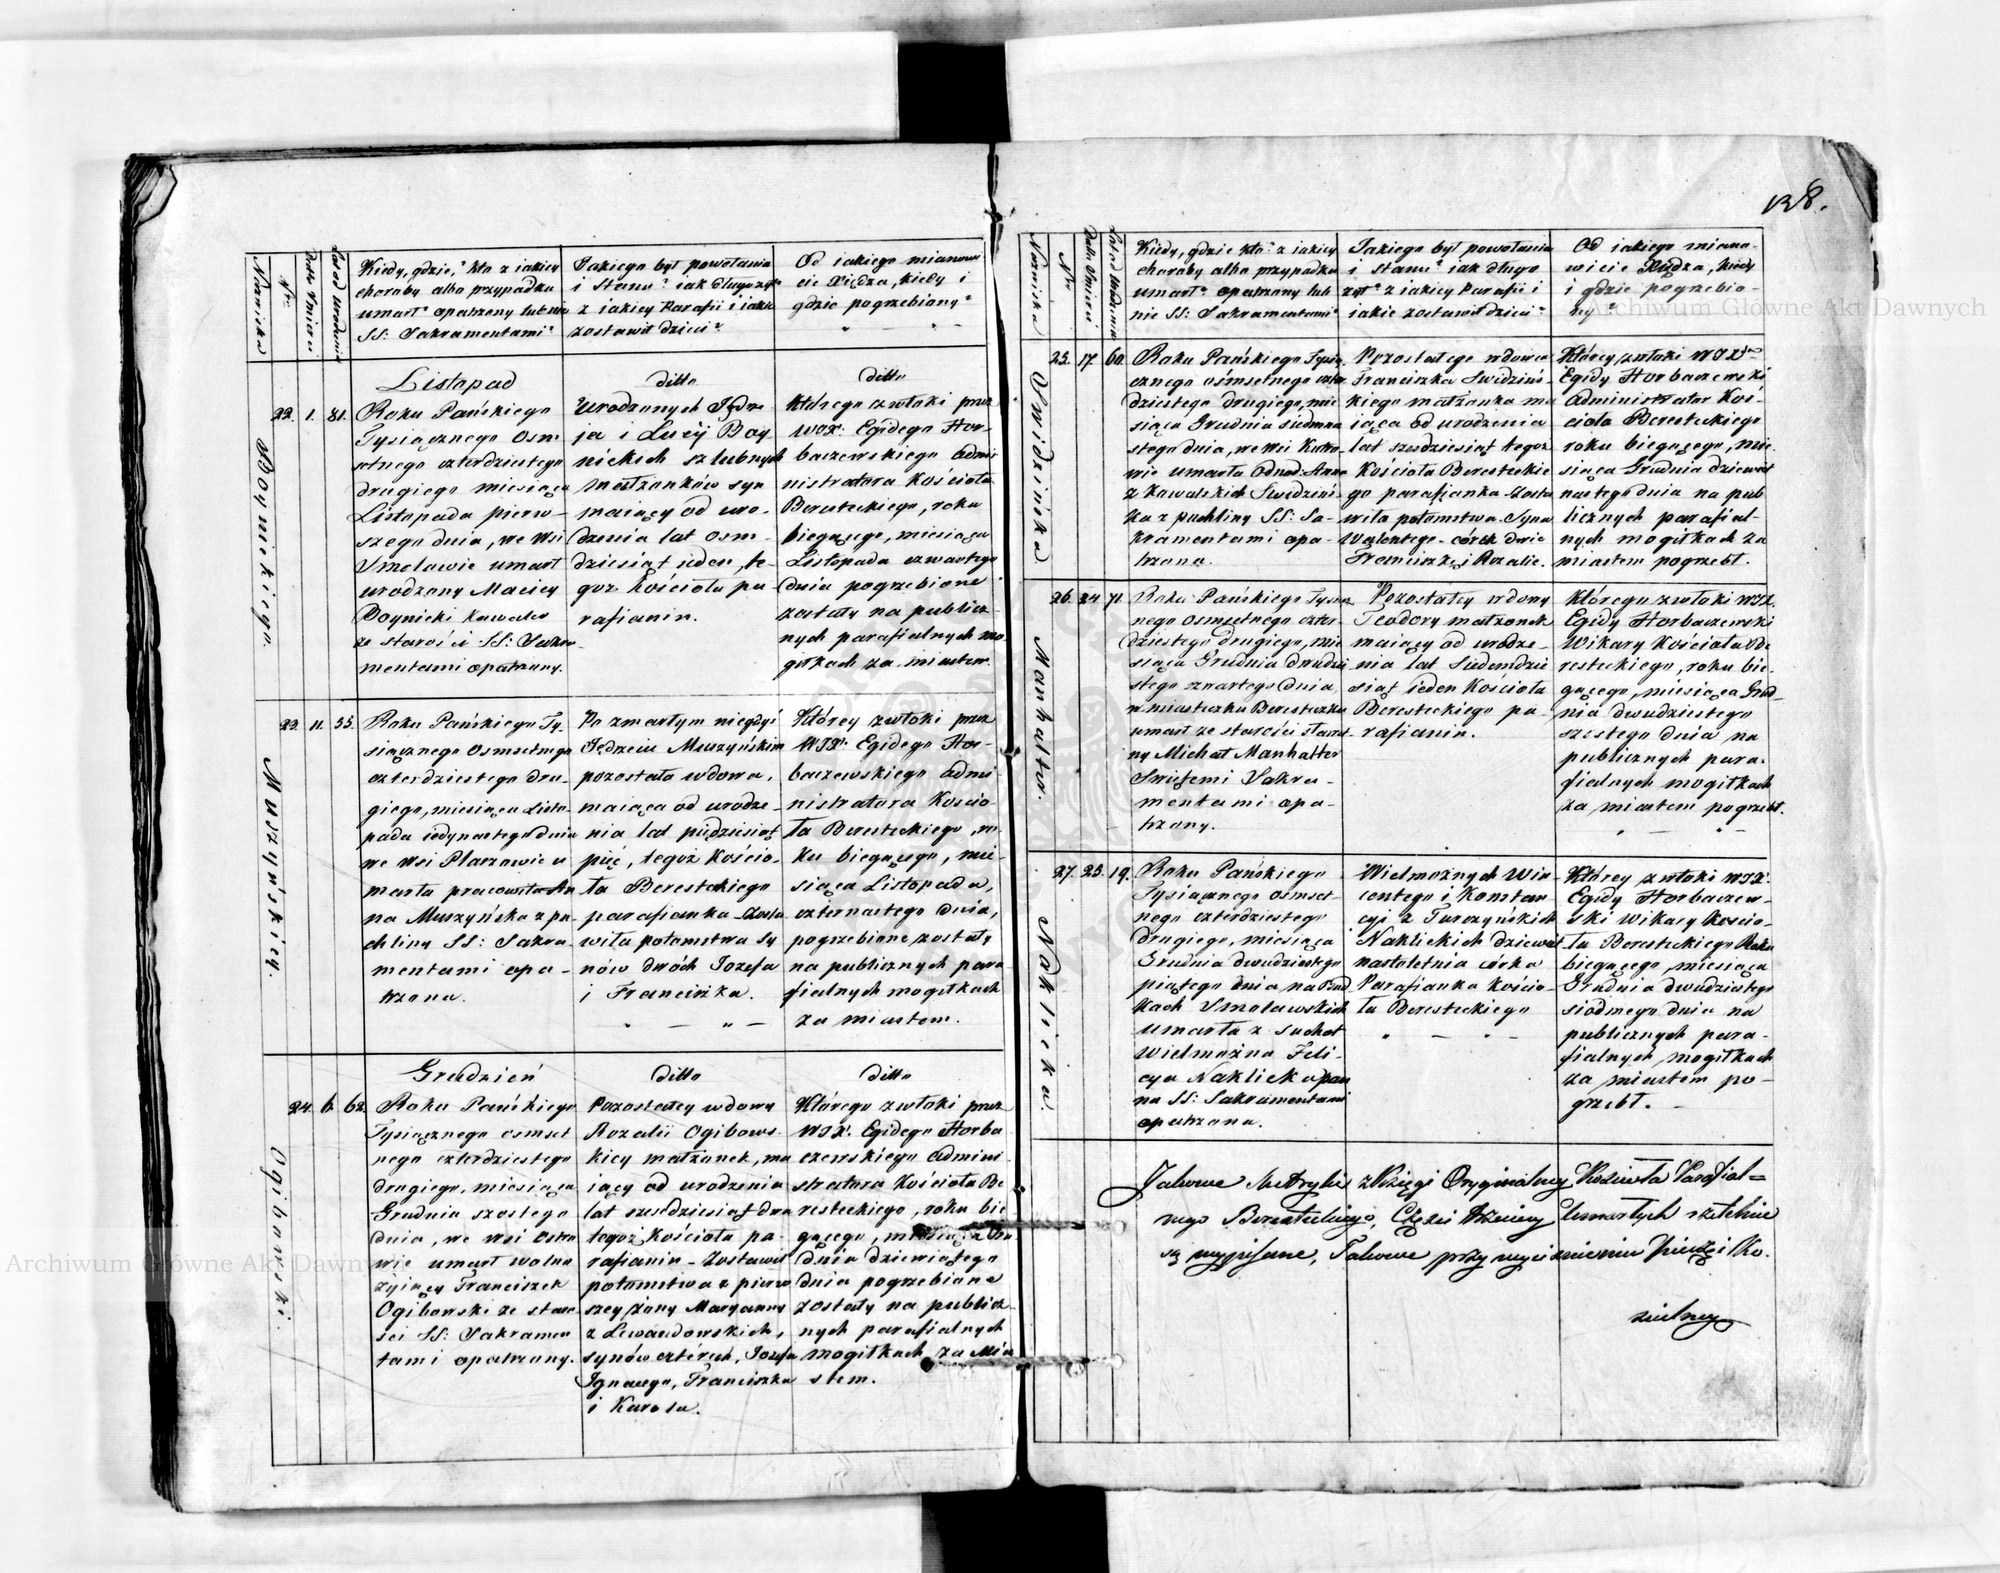 138.
Nazwiska
Nro
Data Śmierci
Lat od Urodzenia
Kiedy, gdzie, kto z jakiey
choroby albo przypadku
umarł? opatrzony lub nie
SS: Sakramentami?
Jakiego był powołania
i stanu? jak długo żył?
z jakiey Parafii i jakie
zostawił dzieci?
Od jakiego mianowi
cie Xiędza, kiedy i
gdzie pogrzebiony?
Woynickiego.
22. 1. 81.
Listopad
Roku Pańskiego
Tysiącznego osm
setnego czterdziestego
drugiego miesiąca
Listopada pierw-
szego dnia, we wsi
Smolawie umarł
urodzony Maciey
Woynicki Kawaler
ze starości SS: Sakra
mentami opatrzony.
ditto
Urodzonych Jędrze
ja i Lucyi Woy
nickich szlubnych
małżonków syn
maiący od uro-
dzenia lat osm-
dziesiąt ieden, te-
goż kościoła pa
rafianin.
ditto
Którego zwłoki przez
WJX: Egidego Hor-
baczewskiego Admi
nistratora Kościoła
Beresteckiego, roku
biegącego, miesiąca
Listopada czwartego
dnia pogrzebione
zostały na publicz-
nych parafialnych mo
giłkach za miastem.
Muszyńskiey.
23. 11. 55.
Roku Pańskiego Ty-
siącznego Osmsetnego
czterdziestego dru-
giego, miesiąca Listo-
pada iedynastego dnia
we wsi Plaszowie u
marła pracowita An
na Muszyńska z pu
chliny SS: Sakra-
mentami opa-
trzona.
Po zmarłym niegdyś
Jędrzeiu Muszyńskim
pozostała wdowa,
maiąca od urodze-
nia lat pięćdziesiąt
pięć, tegoż Kościo-
ła Beresteckiego
parafianka-Zosta
wiła potomstwa sy
nów dwóch Jozefa
i Franciszka.
Którey zwłoki przez
WJX: Egidego Hor-
baczewskiego Admi
nistratora Kościo-
ła Beresteckiego, ro
ku biegącego, mie-
siąca Listopada,
czternastego dnia,
pogrzebione zostały
na publicznych para
fialnych mogiłkach
za miastem.
Ogibowski.
24. 6. 62.
Grudzień
Roku Pańskiego
Tysiącznego osmset
nego czterdziestego
drugiego, miesiąca
Grudnia szostego
dnia, we wsi Ostro
wie umarł wolno
żyiący Franciszek
Ogibowski ze staro
sci SS: Sakramen
tami opatrzony.
ditto
Pozostałey wdowy
Rozalii Ogibows-
kiey małżonek, ma
iący od urodzenia
lat sześćdziesiąt dwa
tegoż Kościoła pa-
rafianin-Zostawił
potomstwa z pierw
szey żony Maryanny
z Lewandowskich,
synów czterech, Jozefa
Ignacego, Franciszka
i Karola.
ditto
Którego zwłoki przez
WJX: Egidego Horba
czewskiego Admini
stratora Kościoła Be
resteckiego, roku bie
gącego, miesiąca Gru
dnia dziewiątego
dnia pogrzebione
zostały na publicz-
nych parafialnych
mogiłkach za Mia
stem.
Nazwiska
Nr
Data Śmierci
Lat od Urodzenia
Kiedy, gdzie kto? z jakiey
choroby albo przypadku
umarł? opatrzony lub
nie SS: Sakramentami?
Jakiego był powołania
i stanu? iak długo
żył? z iakiey Parafii i
jakie zostawił dzieci?
Od iakiego miano-
wicie Xiędza, kiedy
i gdzie pogrzebio-
ny?
Swidzińska
25. 17. 60.
Roku Pańskiego Tysią
cznego ośmsetnego czter
dziestego drugiego, mie
siąca Grudnia siedmna
stego dnia, we wsi
wie umarła
z Kowalskich Swidziń-
ka z puchliny SS: Sa-
kramentami opa-
trzona.
Pozostałego wdowca
Franciszka Swidziń-
kiego małżonka ma
iąca od urodzenia
lat sześdziesiąt tegoż
Kościoła Beresteckie
go parafianka-Zosta
wiła potomstwa-Syna
Walentego-córek dwie
Franciszkę i Rozalię.
Którey zwłoki WJX
Egidy Horbaczewski
Administrator Koś-
cioła Beresteckiego
roku biegącego, mie
siąca Grudnia dziewięt
nastego dnia na pub
licznych parafial-
nych mogiłkach za
miastem pogrzebł.
Manhalter.
26. 24. 71.
Roku Pańskiego Tysiącz
nego osmsetnego czter
dziestego drugiego, mie
siąca Grudnia dwudzie
stego czwartego dnia
w miasteczku Beresteczku
umarł ze starości sławet
ny Michał Manhalter
Swiętemi Sakra-
mentami opa-
trzony.
Pozostałey wdowy
Teodory małżonek
maiący od urodze-
nia lat siedemdzie
siąt ieden Kościoła
Beresteckiego pa-
rafianin.
Którego zwłoki WJX.
Egidy Horbaczewski
Wikary Kościoła Be
resteckiego, roku bie-
gącego, miesiąca Grud-
nia dwudziestego
szóstego dnia na
publicznych para-
fialnych mogiłkach
za miastem pogrzebł.
Naklicka.
27. 25. 19.
Roku Pańskiego
Tysiącznego ośmset-
nego czterdziestego
drugiego, miesiąca
Grudnia dwudziestego
piątego dnia na Bud
kach Smolawskich
umarła z suchot
Wielmożna Feli-
cya Naklicka pan
na SS: Sakramentami
opatrzona.
Wielmożnych Win
centego i Konstan
cyi z Turczyńskich
Naklickich dziewięt
nastoletnia córka
Parafianka Kościo-
ła Beresteckiego
Którey zwłoki WJX:
Egidy Horbaczew-
ski Wikary Kościo-
ła Beresteckiego Roku
biegącego, miesiąca
Grudnia dwudziestego
siódmego dnia na
publicznych para-
fialnych mogiłkach
za miastem po-
grzebł.
Jakowe Metryki z Księgi Oryginalney Kościoła Parafial=
nego Beresteckiego, Części Trzeciey Umarłych rzetelnie
są wypisane, Takowe przy wyciśnieniu Pieczęci Ko.
scielney
Archiwum Główne Akt Dawnych
Archiwum Główne Akt Dawnych